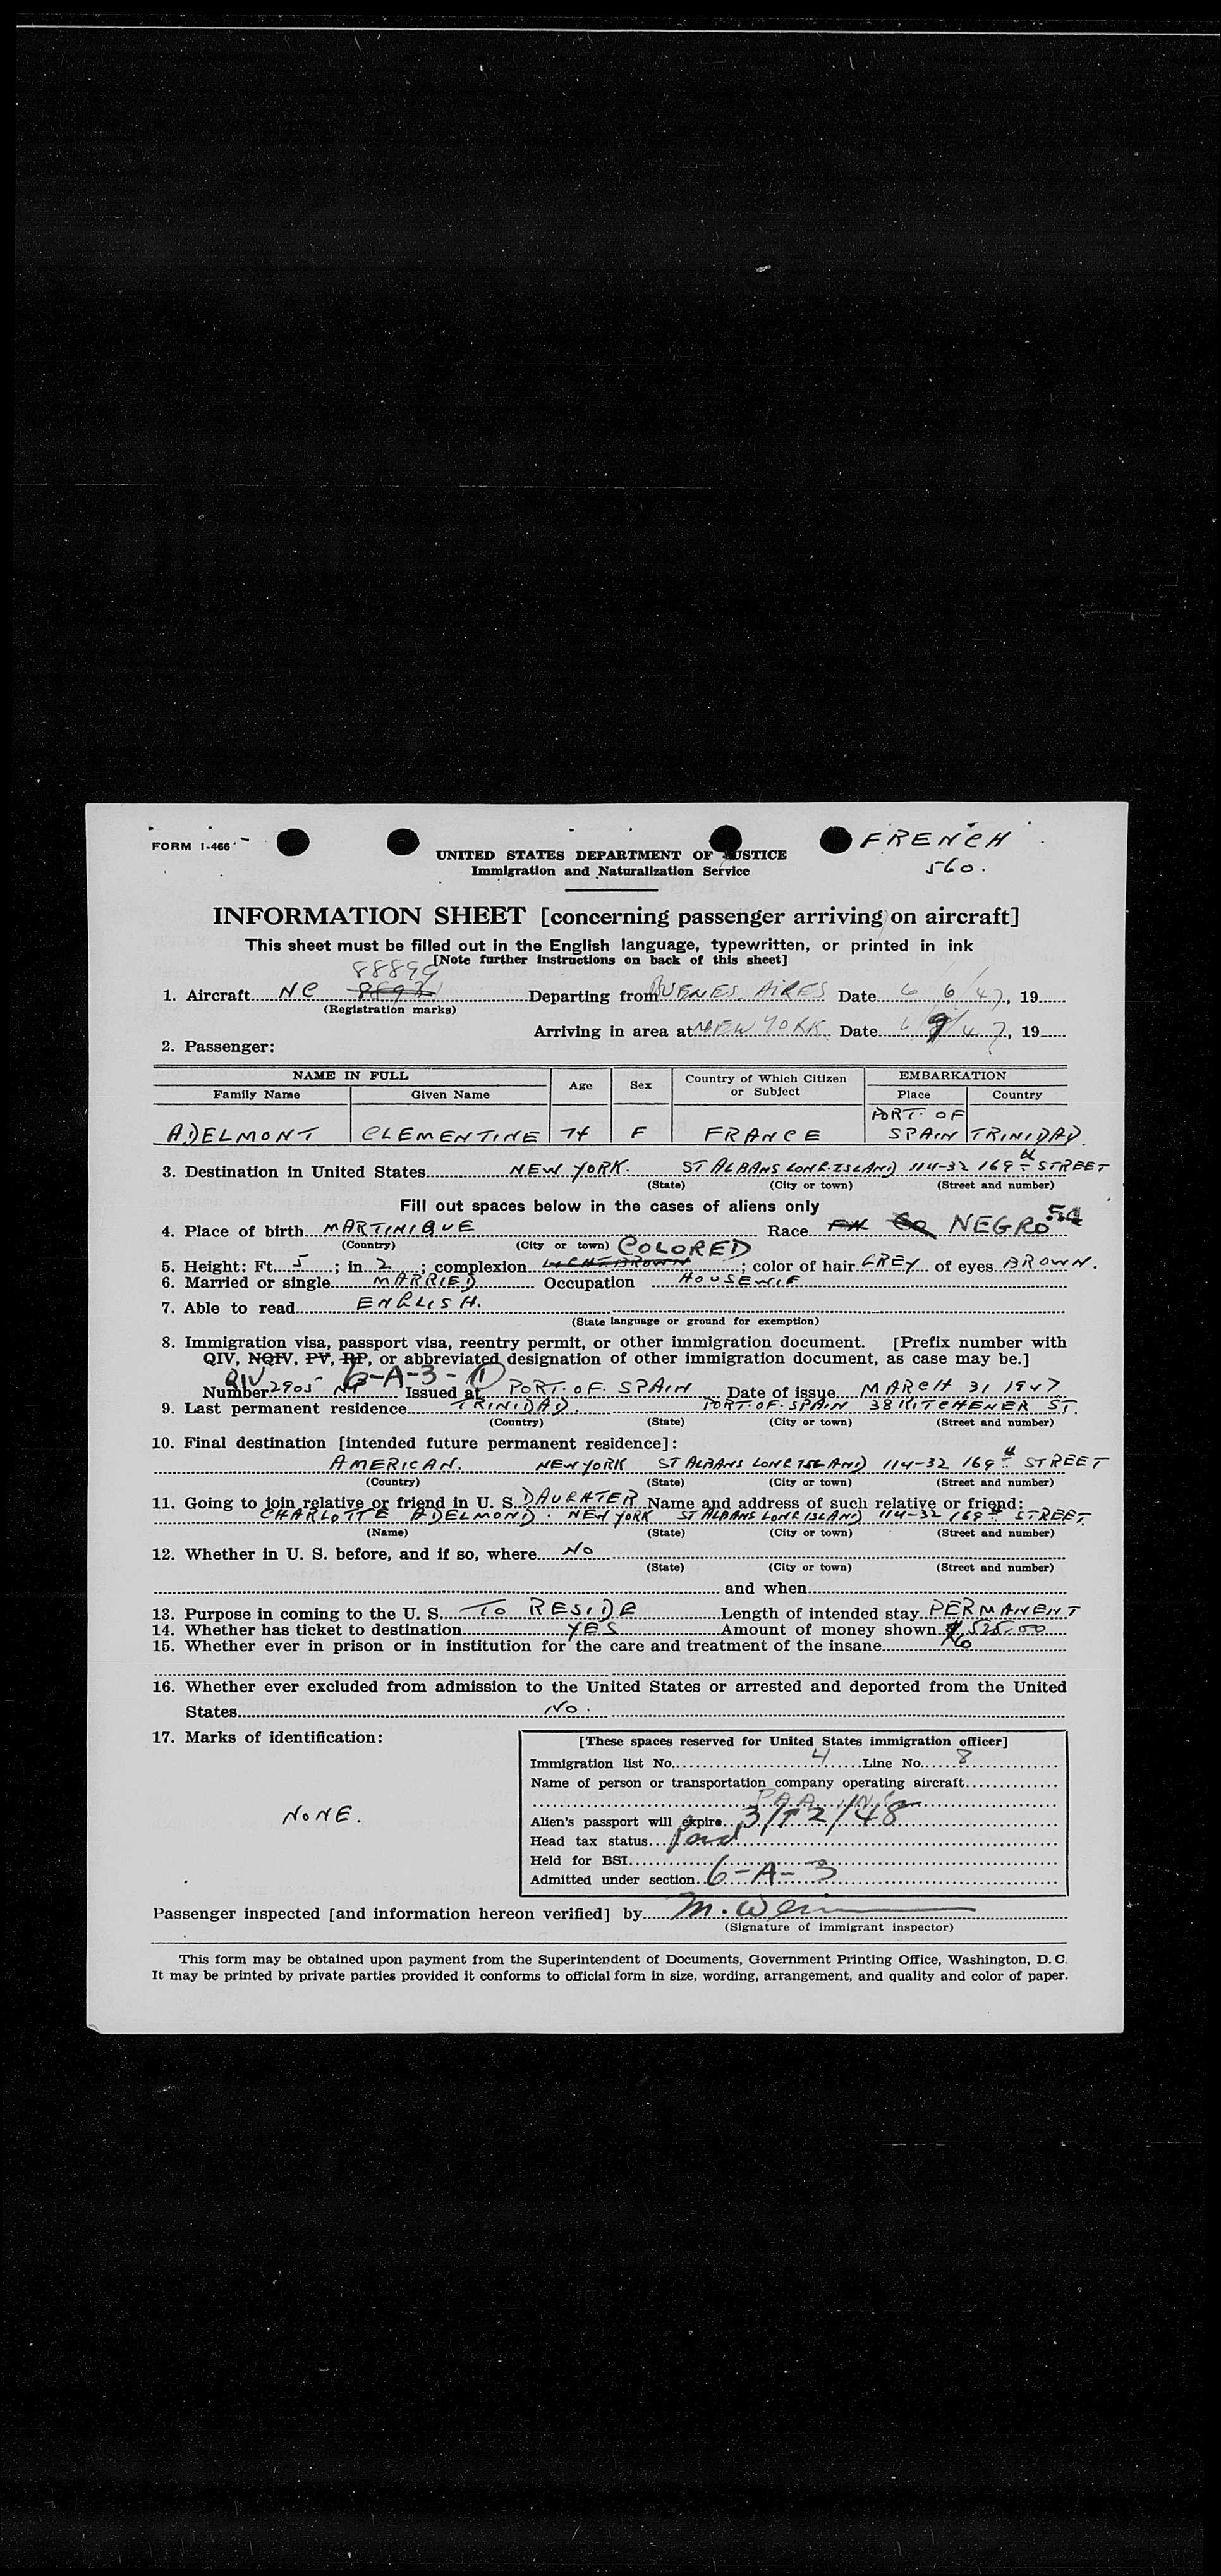 FORM I-466
FRENCH
560.
UNITED STATES DEPARTMENT OF JUSTICE
Immigration and Naturalization Service
INFORMATION SHEET [concerning passenger arriving on aircraft]
This sheet must be filled out in the English language, typewritten, or printed in ink
[Note further instructions on back of this sheet]
88899
1. Aircraft NC Departing from BUENES. AIRES Date 6 6/47, 19
(Registration marks)
Arriving in area at NEW YORK Date 6/9/47, 19
2. Passenger:
NAME IN FULL Age Sex Country of Which Citizen or Subject EMBARKATION
Family Name Given Name Place Country
PORT. OF
ADELMONT CLEMENTINE 74 F FRANCE SPAIN TRINIDAD.
3. Destination in United States NEW YORK. ST ALBANS LONG.ISLAND 114-32 169 STREET
(State) (City or town) (Street and number)
Fill out spaces below in the cases of aliens only
4. Place of birth MARTINIQUE Race NEGRO
(Country) (City or town) COLORED
5. Height: Ft. 5; in 2; complexion LIGHT BROWN; color of hair GREY of eyes BROWN.
6. Married or single MARRIED Occupation HOUSEWIFE
7. Able to read ENGLISH.
(State language or ground for exemption)
8. Immigration visa, passport visa, reentry permit, or other immigration document. [Prefix number with
QIV, NQIV, PV, RP, or abbreviated designation of other immigration document, as case may be.]
QIV 6-A-3-1
Number 2905 Issued at PORT. OF. SPAIN Date of issue MARCH 31 1947
9. Last permanent residence TRINIDAD. PORT. OF. SPAIN 38 KITCHENER ST.
(Country) (State) (City or town) (Street and number)
10. Final destination [intended future permanent residence]:
AMERICAN. NEW YORK ST ALBANS LONG ISLAND 114-32 169 STREET
(Country) (State) (City or town) (Street and number)
11. Going to join relative or friend in U. S. DAUGHTER Name and address of such relative or friend:
CHARLOTTE ADELMOND. NEW YORK ST ALBANS LONG ISLAND 114-32 169 STREET.
(Name) (State) (City or town) (Street and number)
12. Whether in U. S. before, and if so, where No
(State) (City or town) (Street and number)
and when
13. Purpose in coming to the U. S. To RESIDE Length of intended stay PERMANENT
14. Whether has ticket to destination YES Amount of money shown $525.00
15. Whether ever in prison or in institution for the care and treatment of the insane No
16. Whether ever excluded from admission to the United States or arrested and deported from the United
States No.
17. Marks of identification:
NONE.
[These spaces reserved for United States immigration officer]
Immigration list No. 4 Line No. 8
Name of person or transportation company operating aircraft
PAA INC
Alien's passport will expire 3/12/48
Head tax status Paid
Held for BSI
Admitted under section 6-A-3
Passenger inspected [and information hereon verified] by M.
(Signature of immigrant inspector)
This form may be obtained upon payment from the Superintendent of Documents, Government Printing Office, Washington, D. C.
It may be printed by private parties provided it conforms to official form in size, wording, arrangement, and quality and color of paper.